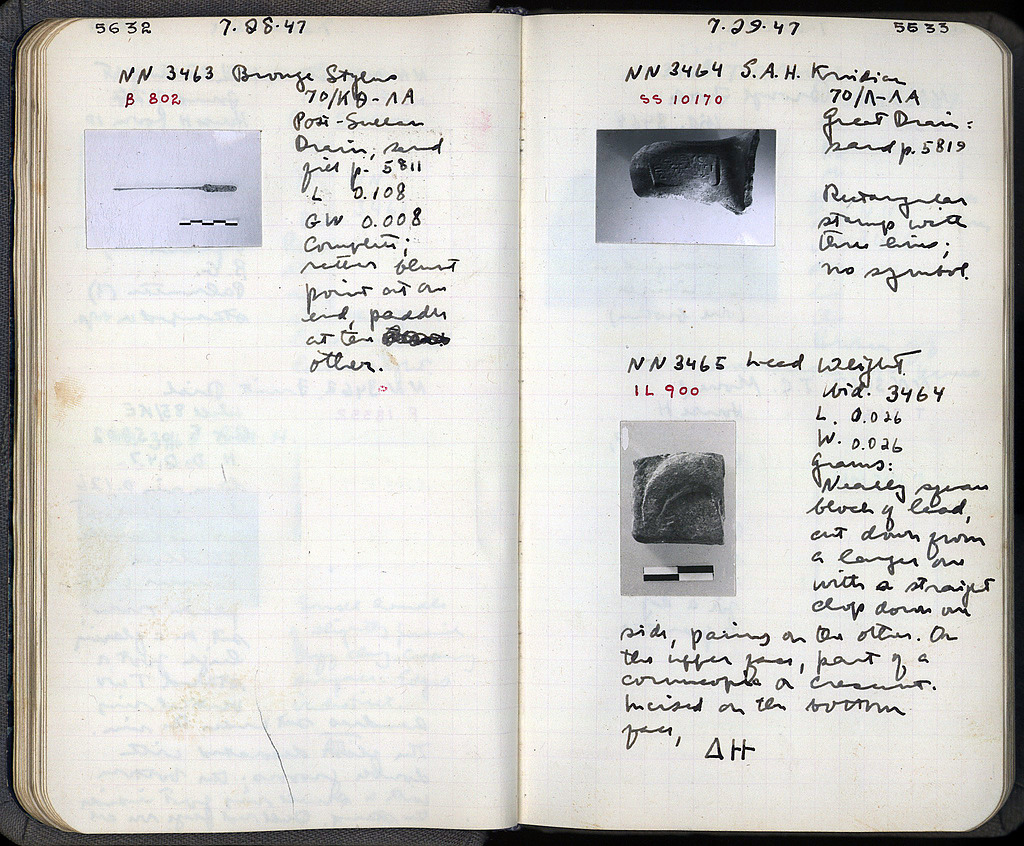 5632
7.28.47
NN 3463 Bronze Stylus
B 802
70/ΚΘ-ΛΑ
Post-Sullan
Drain; sand
fill p. 5811
L 0.108
GW 0.008
Complete;
rather blunt
point at one
end, paddle
at the
other.
7.29.47
5633
NN 3464 S.A.H. Knidian
SS 10170
70/Λ-ΛΑ
Great Drain:
sand p. 5819
Rectangular
stamp with
three lines;
no symbol.
NN 3465 Lead Weight.
IL 900
Wid. 3464
L. 0.026
W. 0.026
Grams:
Neatly square
block of lead,
cut down from
a larger one
with a straight
chop down one
side, paring on the other. On
the upper face, part of a
cornucopia or crescent.
Incised on the bottom
face,
ΔΗ